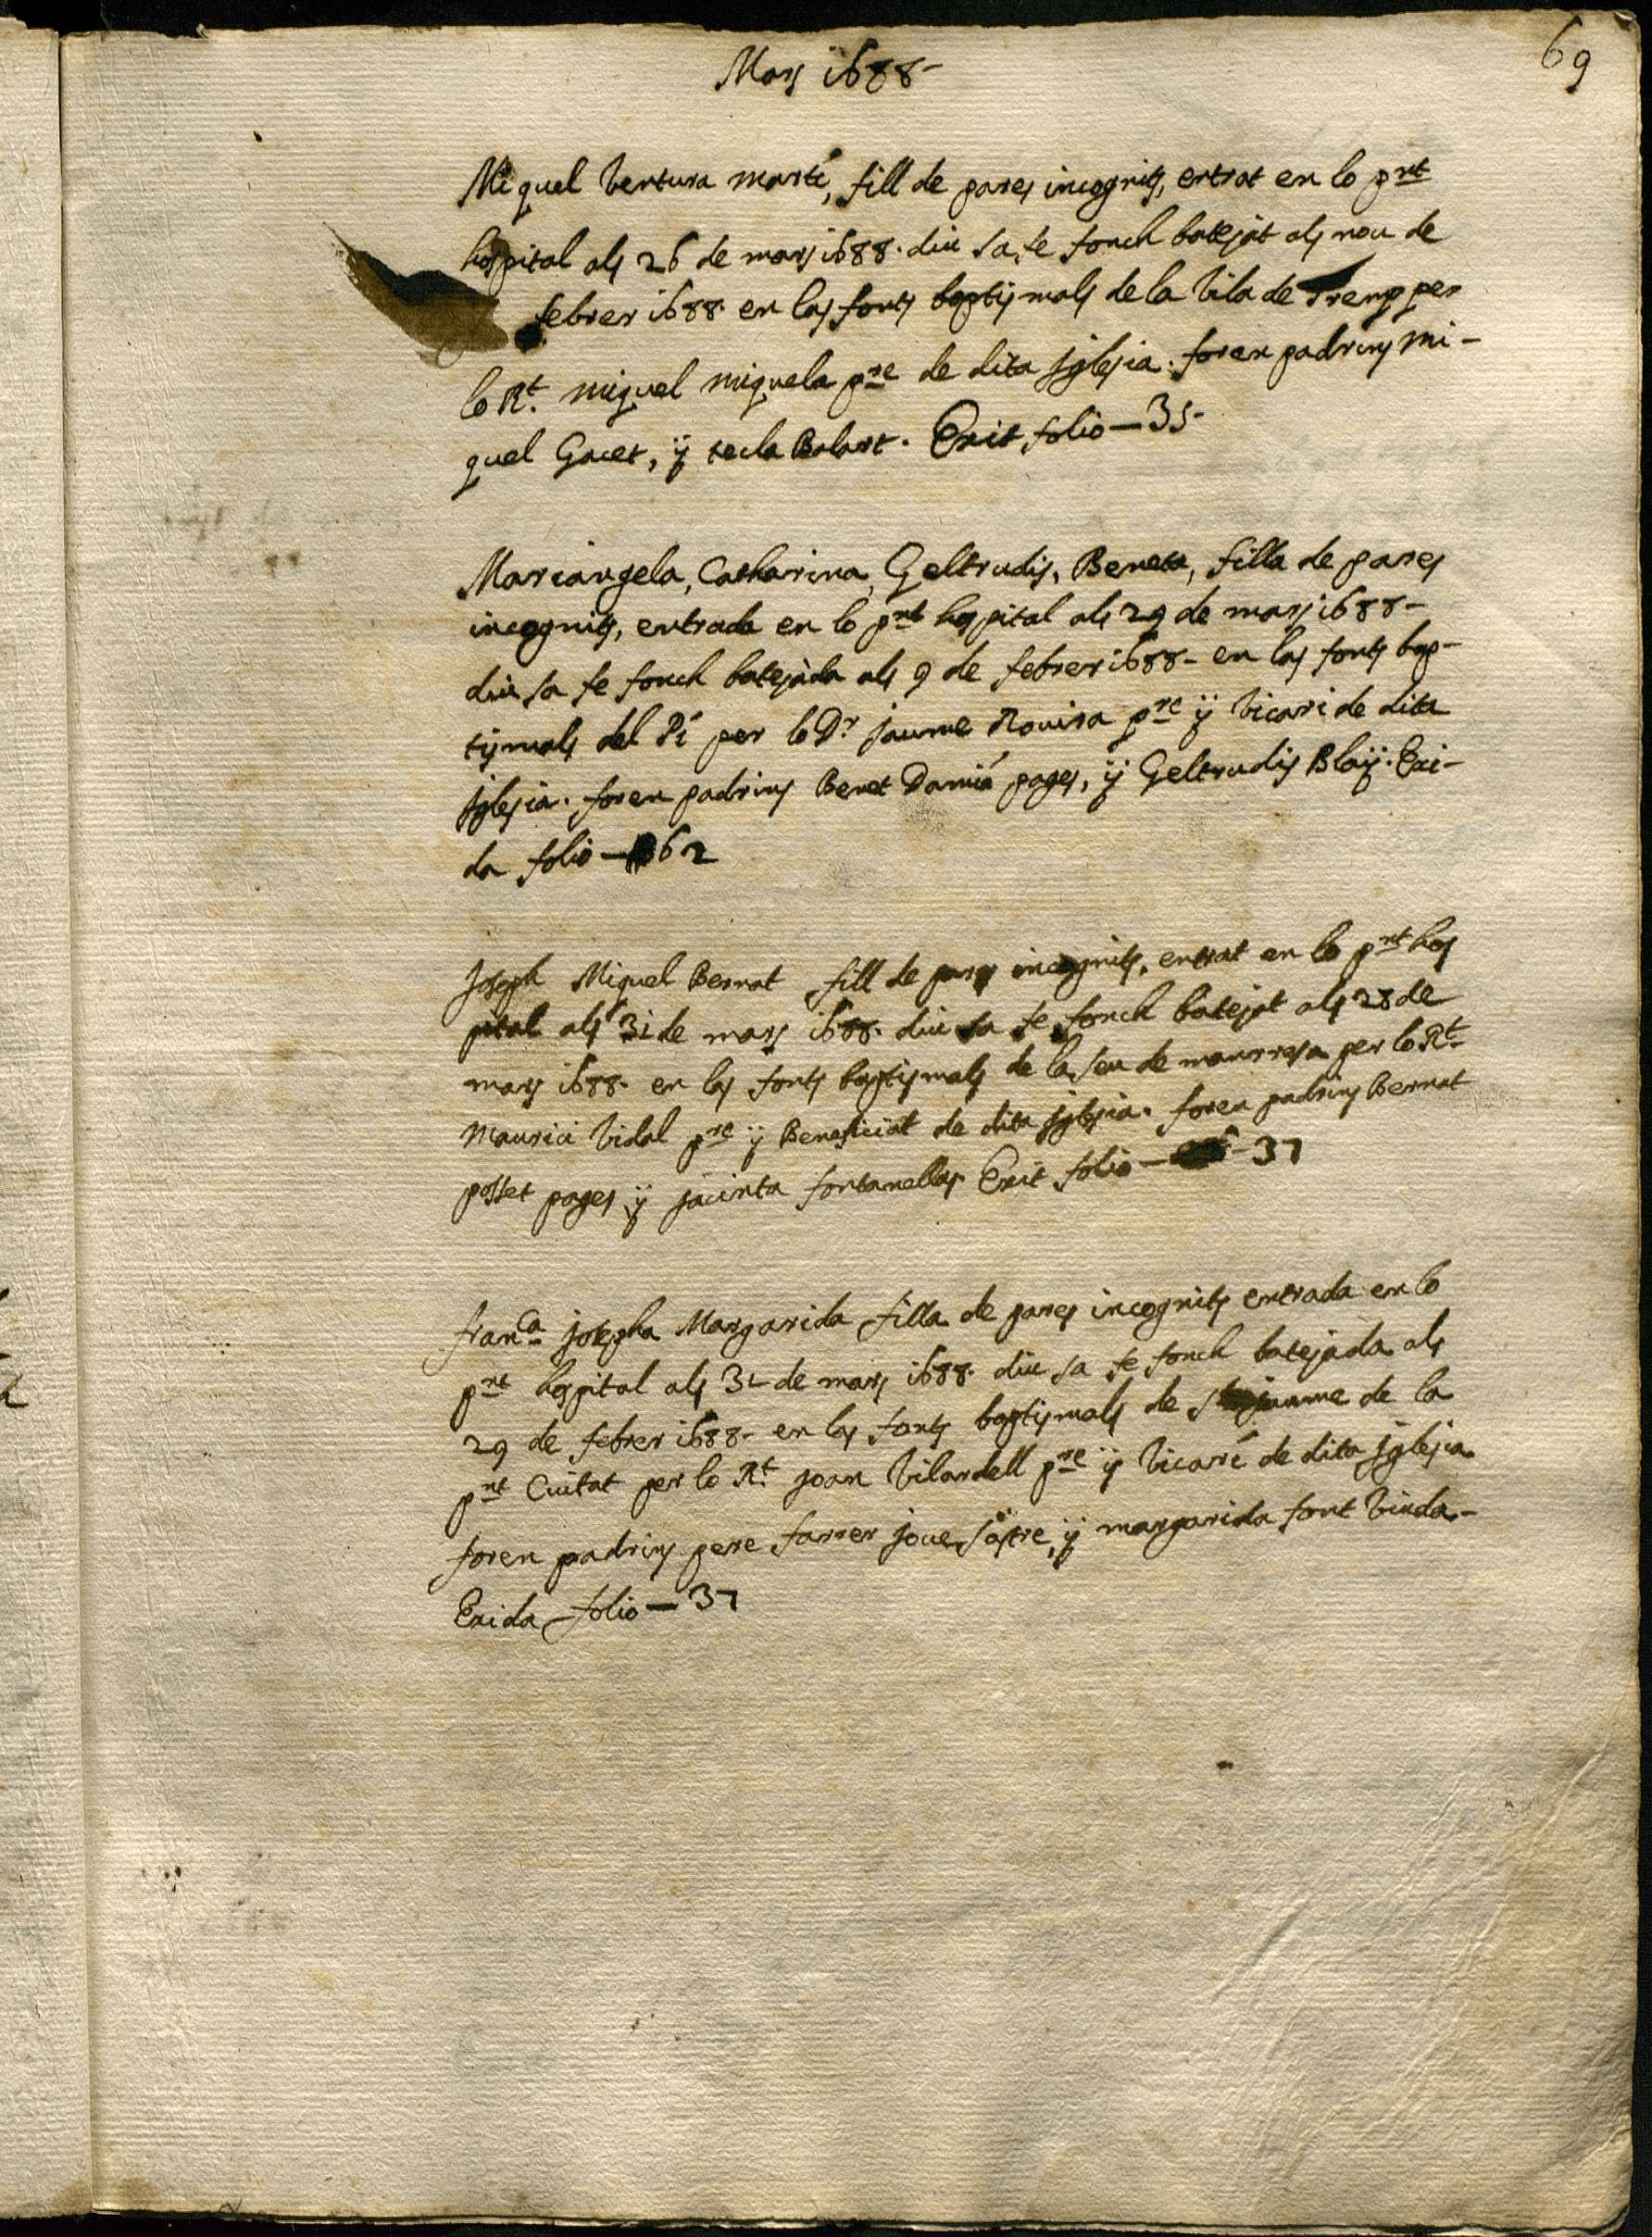 69
Mars 1688-
Miquel Ventura martí, fill de pares incognits, entrat en lo pnt
hospital als 26 de mars 1688. diu sa fe fonch batejat als nou de
febrer 1688. en las fonts baptismals de la Vila de Tremp per
lo Rt. miquel miquela pre de dita Iglesia. foren padrins mi-
quel Gacet, ÿ tecla Balart. Exit folio — 35-
Mariangela, Catharina, Geltrudis, Beneta, filla de pares
incognits, entrada en lo pnt hospital als 29 de mars 1688-
diu sa fe fonch batejada als 9 de febrer 1688- en las fonts bap-
tismals del Pí per lo Dr jaume Rovira pre ÿ Vicari de dita
Iglesia. foren padrins Benet Damiá pages, ÿ Geltrudis Blaÿ. Exi-
da folio — 62
Joseph Miquel Bernat fill de pares incognits, entrat en lo pnt hos
pital als 31 de mars 1688. diu sa fe fonch batejat als 28 de
mars 1688. en las fonts baptismals de la seu de manrresa per lo Rt
Maurici Vidal pre ÿ Beneficiat de dita Iglesia. foren padrins Bernat
posset pages ÿ jacinta fontanellas. Exit folio — 37
franca josepha Margarida filla de pares incognits entrada en lo
pnt hospital als 31 de mars 1688. diu sa fe fonch batejada als
29 de febrer 1688- en las fonts baptismals de St jaume de la
pnt Ciutat per lo Rt joan Vilardell pre ÿ Vicari de dita Iglesia
foren padrins pere farrer jove sastre, ÿ margarida font Viuda-
Exida folio — 37